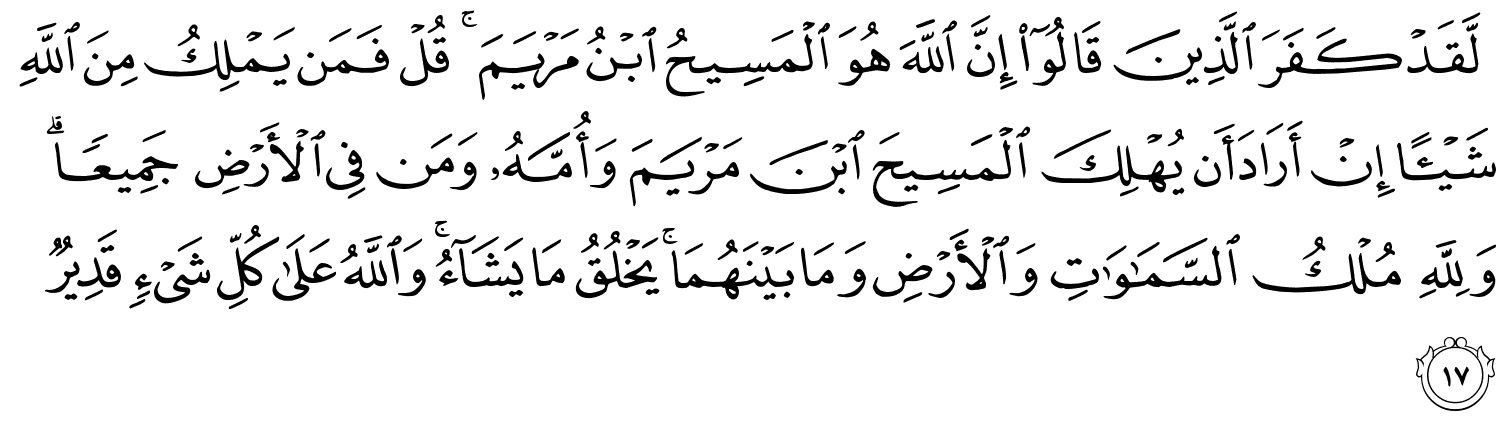 لَّقَدْ كَفَرَ ٱلَّذِينَ قَالُوٓا۟ إِنَّ ٱللَّهَ هُوَ ٱلْمَسِيحُ ٱبْنُ مَرْيَمَ ۚ قُلْ فَمَن يَمْلِكُ مِنَ ٱللَّهِ
شَيْـًٔا إِنْ أَرَادَ أَن يُهْلِكَ ٱلْمَسِيحَ ٱبْنَ مَرْيَمَ وَأُمَّهُۥ وَمَن فِى ٱلْأَرْضِ جَمِيعًا ۗ
وَلِلَّهِ مُلْكُ ٱلسَّمَـٰوَٰتِ وَٱلْأَرْضِ وَمَا بَيْنَهُمَا ۚ يَخْلُقُ مَا يَشَآءُ ۚ وَٱللَّهُ عَلَىٰ كُلِّ شَىْءٍ قَدِيرٌ
١٧